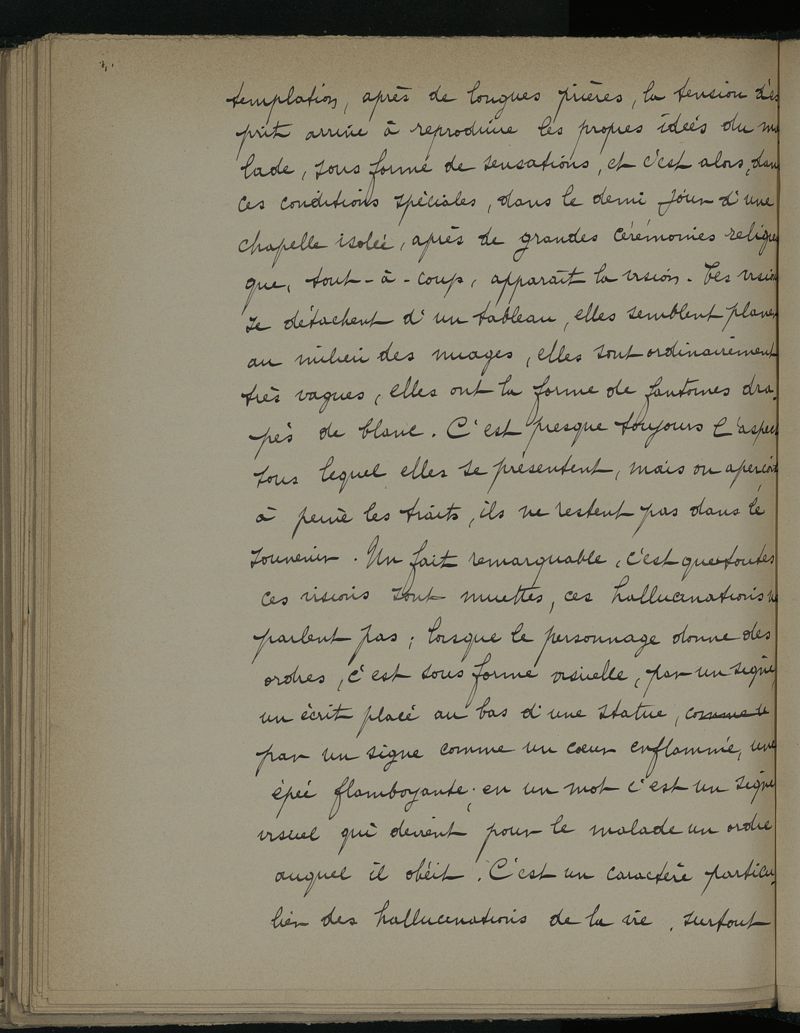 templation, après de longues prières, la tension d'es
prit arrive à reproduire les propres idées du ma
lade, sous forme de sensations, et c'est alors, dans
ces conditions spéciales, dans le demi jour d'une
chapelle isolée, après de grandes cérémonies religieu
que, tout-à-coup, apparaît la vision. Ces vision
se détachent d'un tableau, elles semblent planer
au milieu des nuages, elles sont ordinairement
très vagues, elles ont la forme de fantomes dra-
pés de blanc. C'est presque toujours l'aspect
sous lequel elles se présentent, mais on aperçoit
à peine les traits, ils ne restent pas dans le
souvenir. Un fait remarquable, c'est que toutes
ces visions sont muettes, ces hallucinations ne
parlent pas; lorsque le personnage donne des
ordres, c'est sous forme visuelle, par un signe,
un écrit placé au bas d'une statue, comme u
par un signe comme un cœur enflammé, une
épée flamboyante; en un mot c'est un signe
visuel qui devient pour le malade un ordre
auquel il obéit. C'est un caractère particu-
lier des hallucinations de la vie, surtout